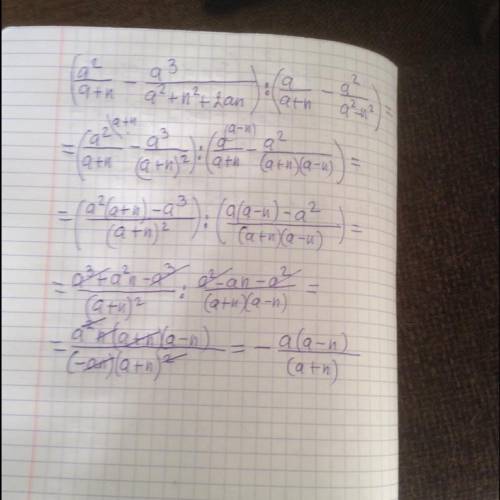 (a²/(a+n) − a³/(a²+n²+2an)) : (a/(a+n) − a²/(a²−n²)) =
= (a²\(a+n/(a+n) − a³/(a+n)²) : (a\(a−n)/(a+n) − a²/((a+n)(a−n))) =
= ((a²(a+n)−a³)/(a+n)²) : ((a(a−n)−a²)/((a+n)(a−n))) =
= (a³+a²n−a³)/(a+n)² : (a²−an−a²)/((a+n)(a−n)) =
= (a²n(a+n)(a−n))/((−an)(a+n)²) = − (a(a−n))/((a+n))